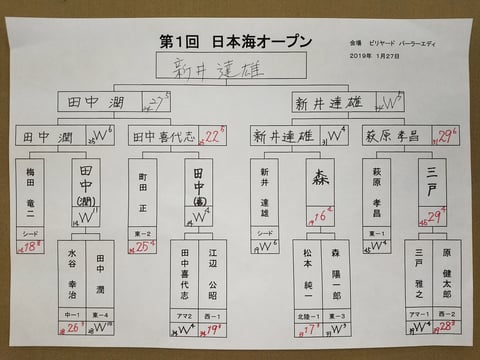 第1回 日本海オープン
会場 ビリヤード パーラーエディ
2019年 1月27日
新井達雄
田中潤
新井達雄
田中潤 W
田中喜代志 22
新井達雄 W
萩原孝昌 29
梅田 竜二
田中(潤)
町田 正
田中(喜)
新井 達雄
森
萩原 孝昌
三戸
シード
東ー2
シード
東ー1
18
W
25
W
W
16
W
29
水谷 幸治
田中 潤
田中喜代志
江辺 公昭
松本 純一
森 陽一郎
三戸 雅之
原 健太郎
中ー1
東ー4
アマ2
西ー2
北陸ー1
東ー3
アマー1
西ー1
26
W
W
19
17
W
W
28